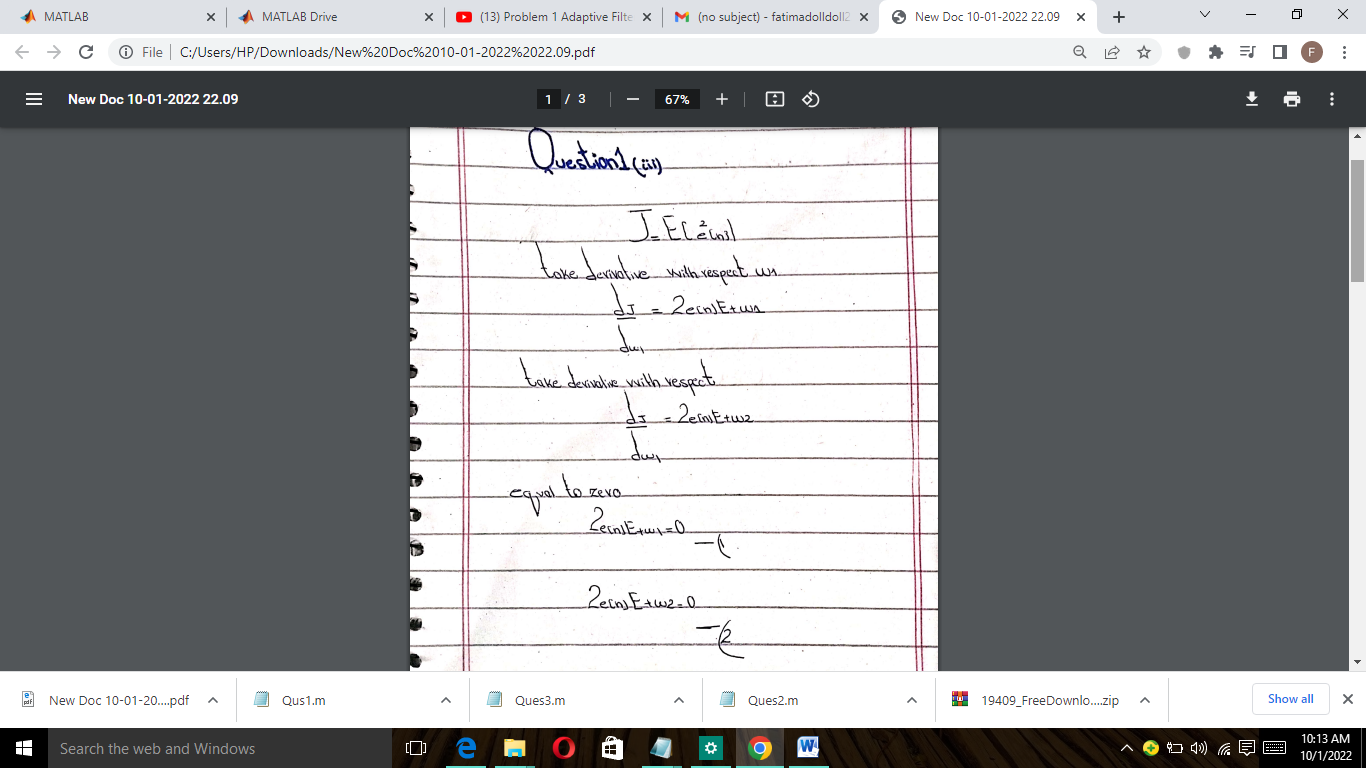 MATLAB
MATLAB Drive
(13) Problem 1 Adaptive Filte
(no subject) - fatimadolldoll2
New Doc 10-01-2022 22.09
File
C:/Users/HP/Downloads/New%20Doc%2010-01-2022%2022.09.pdf
F
New Doc 10-01-2022 22.09
1 / 3
67%
Question1(iii)
J=E[e²[n]]
take derivative with respect w1
dJ = 2e[n]E+w1
dw1
take derivative with respect
dJ = 2e[n]E+w2
dw1
equal to zero
2e[n]E+w1=0
—(1
2e[n]E+w2=0
—(2
New Doc 10-01-20....pdf
Qus1.m
Ques3.m
Ques2.m
19409_FreeDownlo....zip
Show all
Search the web and Windows
10:13 AM
10/1/2022